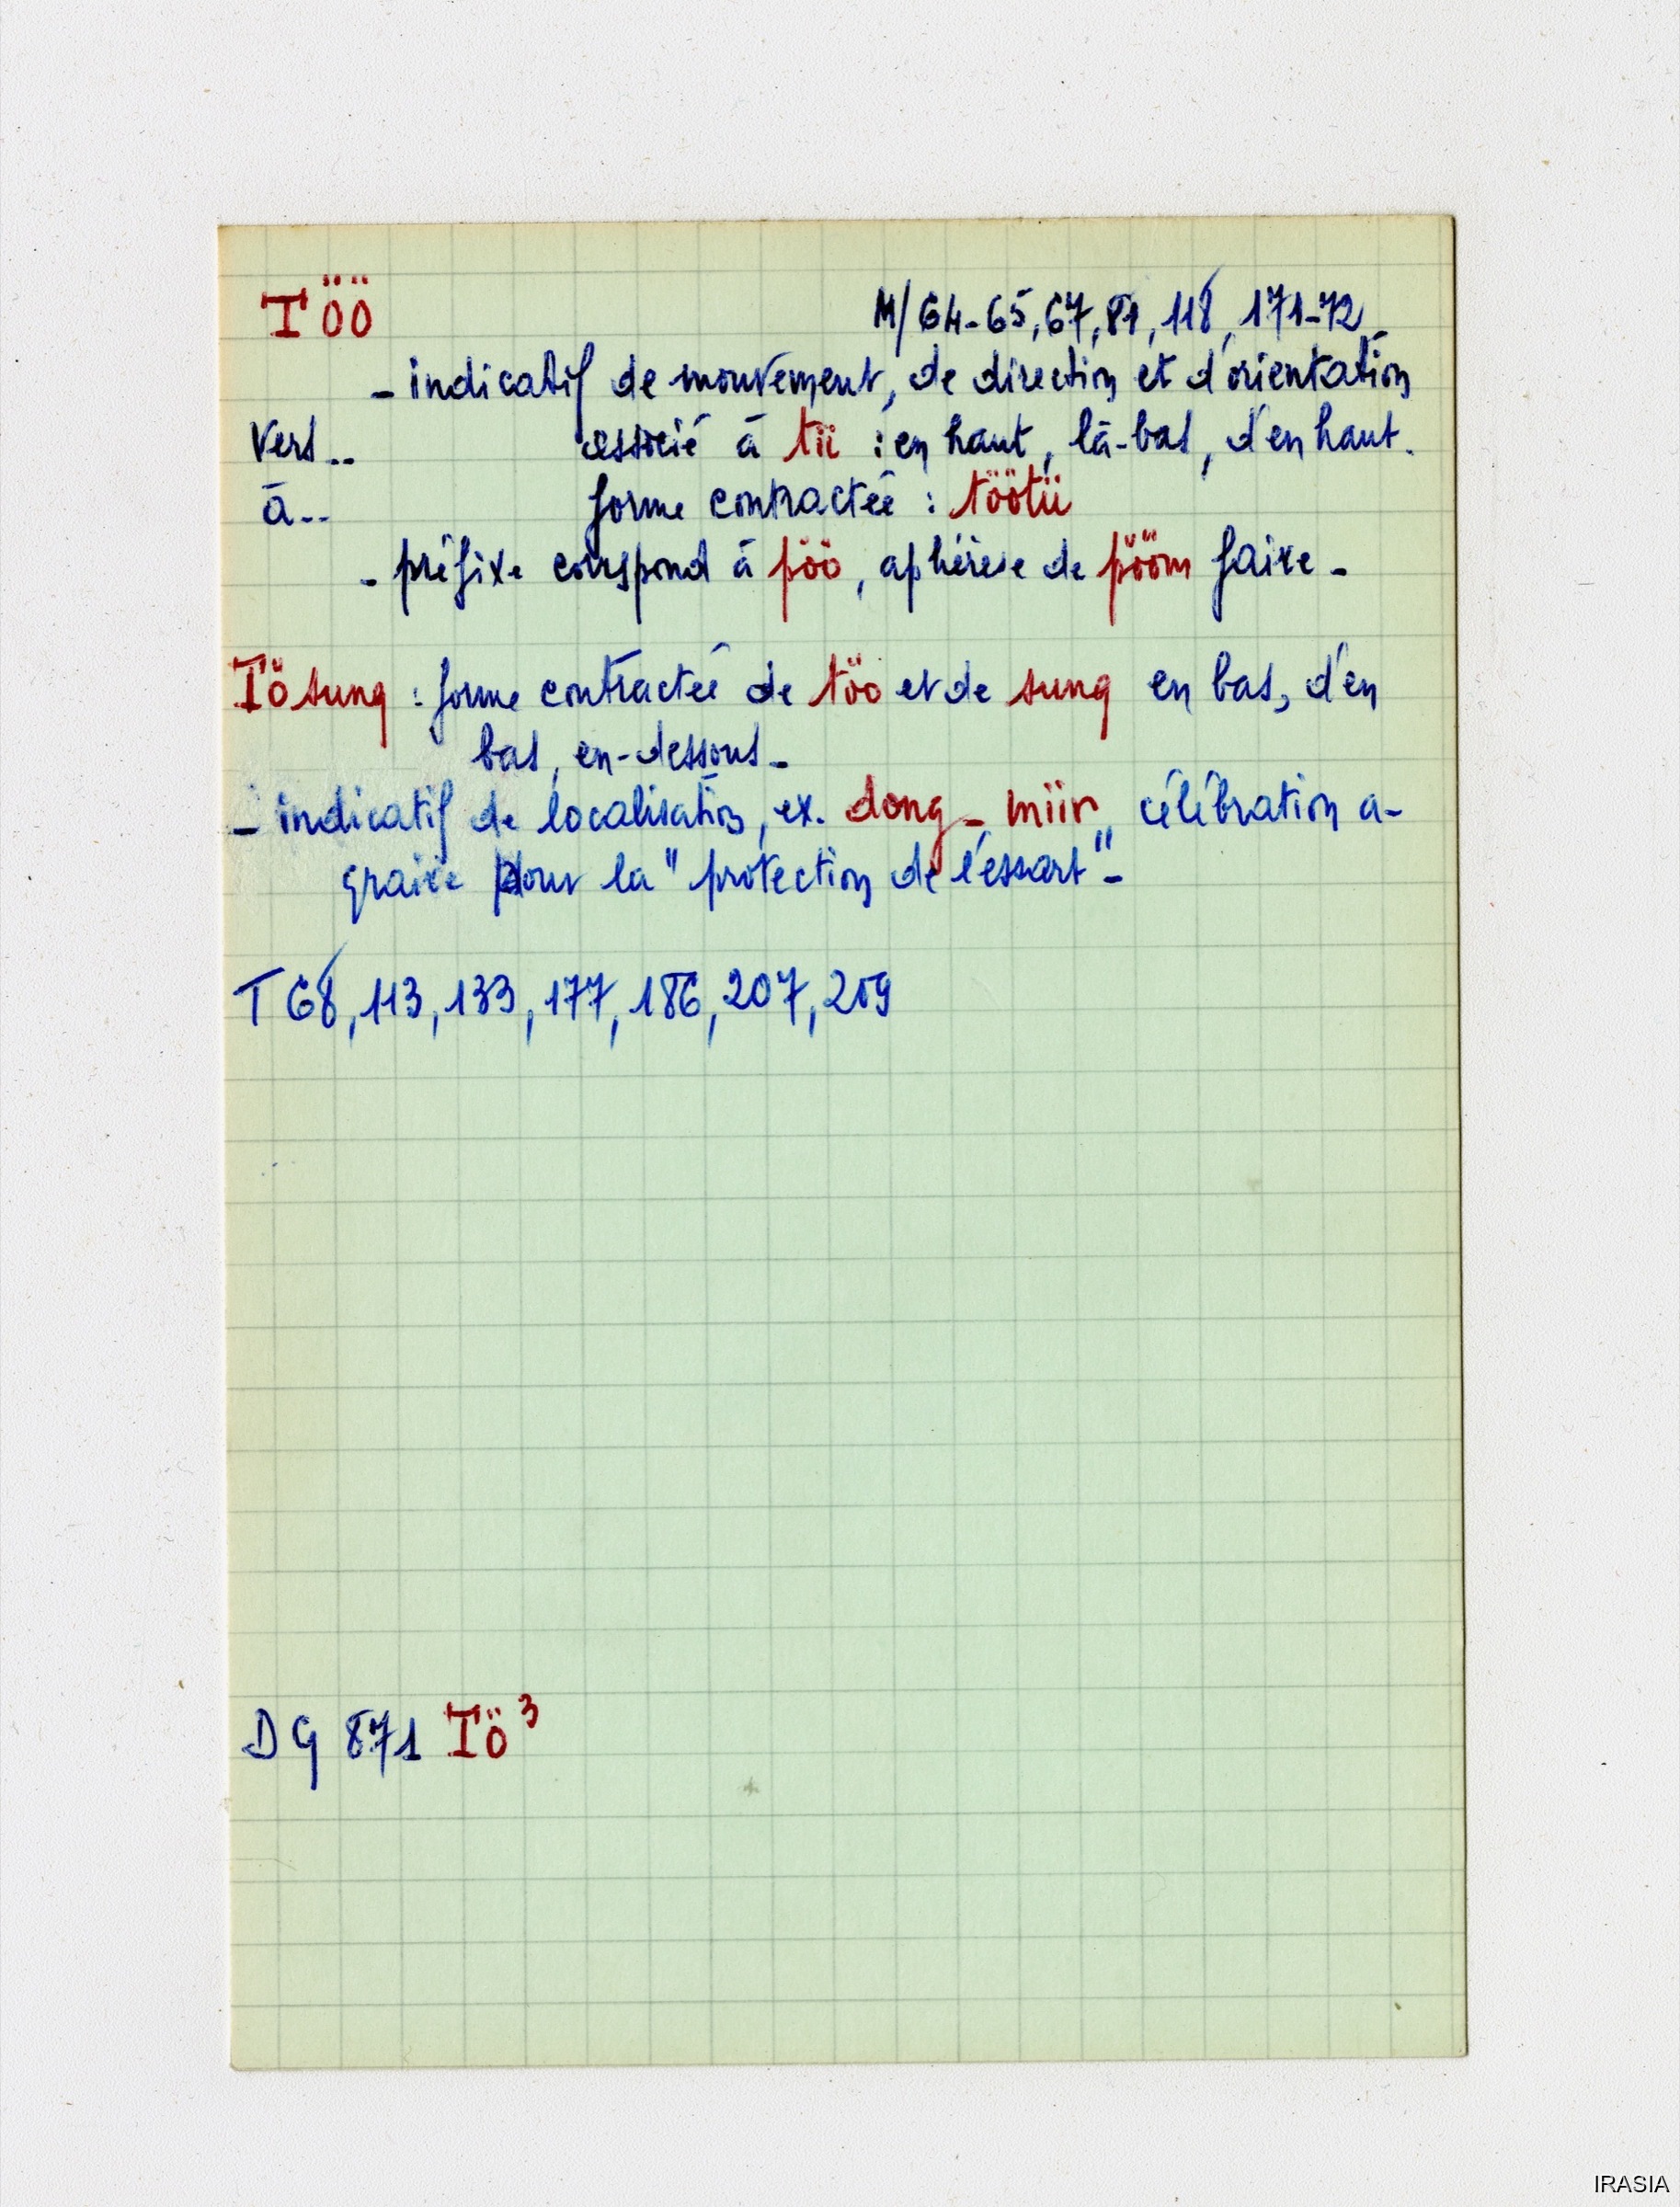 TÖÖ M/64-65,67,81,118,171-72_
_ indicatif de mouvement, de direction et d'orientation
Vers.. associé à tii : en haut, là-bas, d'en haut.
à.. forme contractée : töötii
_ préfixe correspond à pöö, aphérèse de pööm faire_
Tösung : forme contractée de töo et de sung en bas, d'en
bas, en-dessous_
_ indicatif de localisation, ex. dong_miir, célébration a-
graire pour la "protection de l'essart"_
T 68,113,133,177,186,207,209
DG 871 Tö³
IRASIA